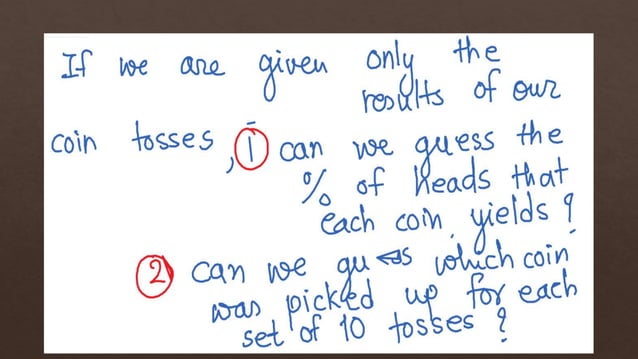 If we are given only the
results of our
coin tosses, 1 can we guess the
% of heads that
each coin yields?
2 can we guess which coin
was picked up for each
set of 10 tosses?